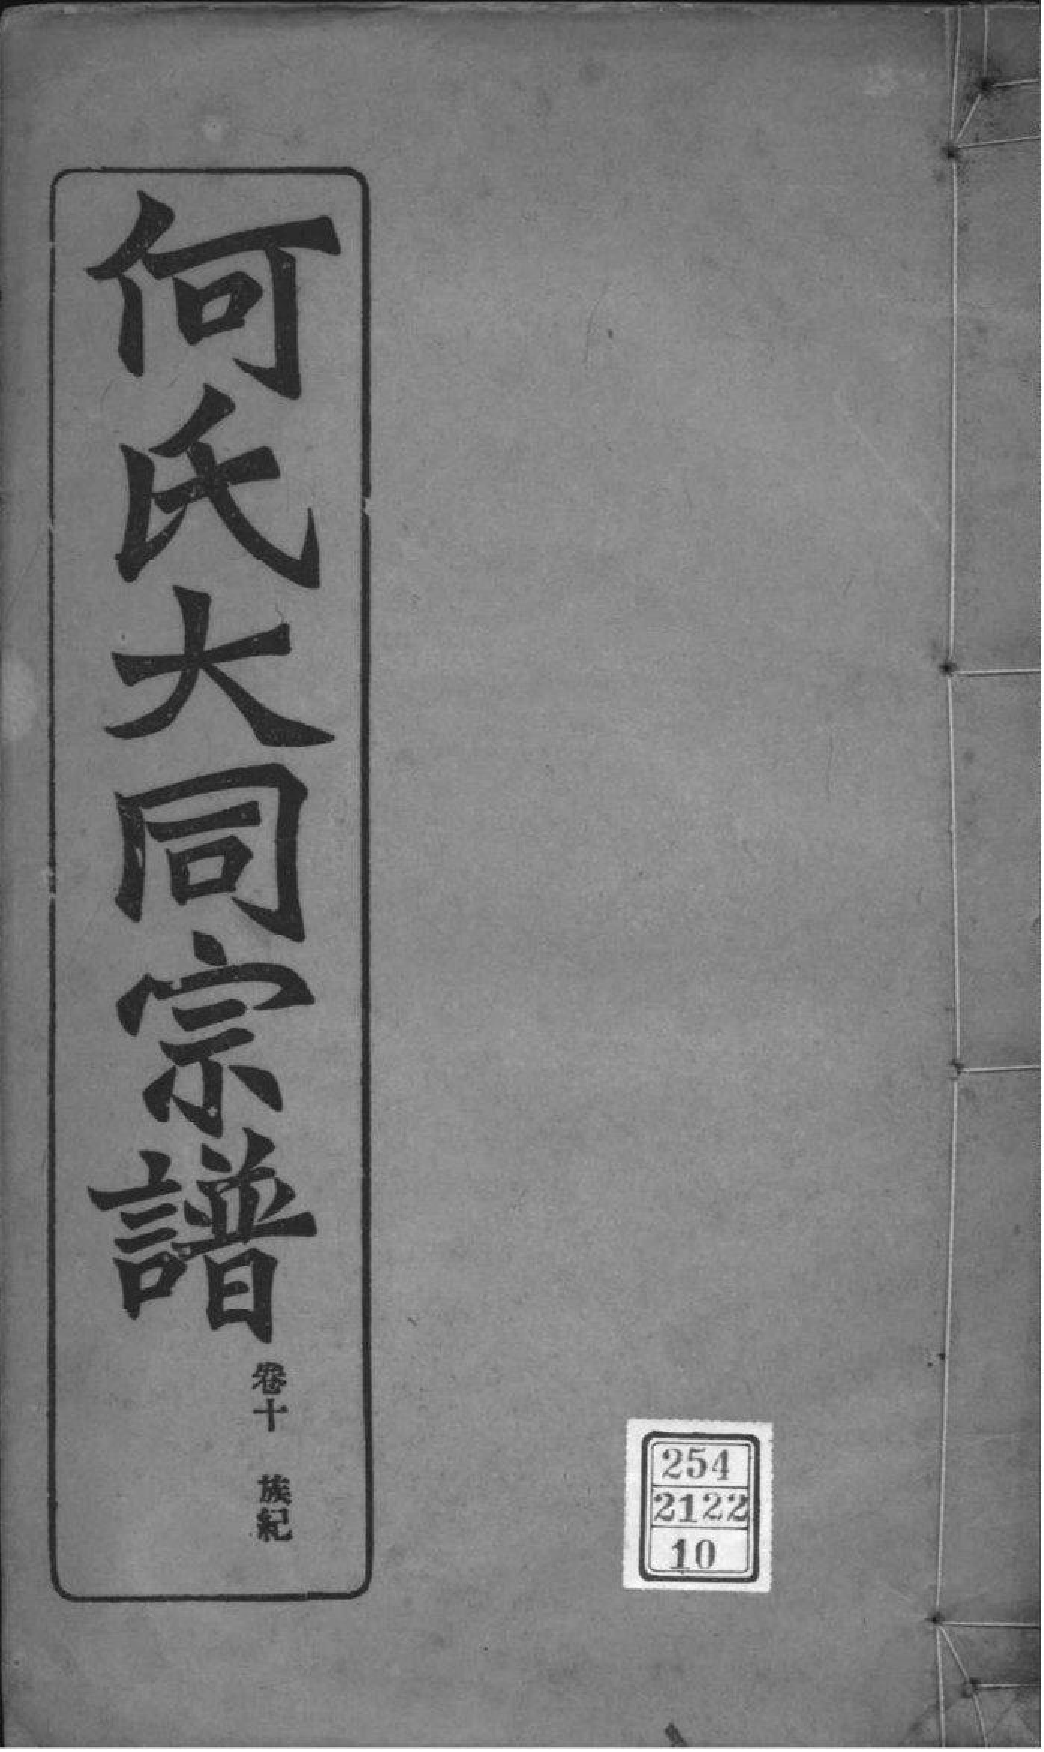 何氏大同宗譜
卷十 族紀
254
2122
10